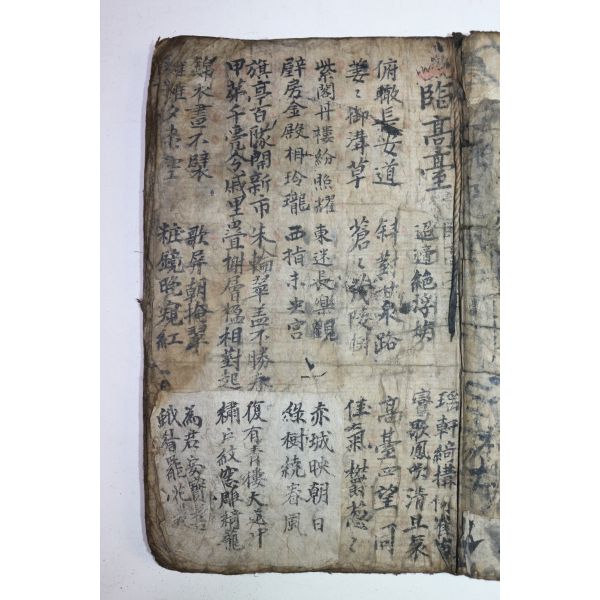 臨高臺
迢遞絕浮埃
瑤軒綺構何崔
鸞歌鳳吹清且哀
俯瞰長安道 斜對甘泉路 高臺四望同
萋〻御溝草 蒼〻茂陵樹 佳氣鬱葱〻
紫閣丹樓紛照耀 東迷長樂觀 赤城映朝日
壁房金殿相玲瓏 西指未央宮 綠樹繞春風
旗亭百隊開新市 朱輪翠盖不勝春 復有靑樓大道中
甲第千甍分戚里 疊榭層楹相對起 繡戶紋窓雕綺籠
錦衣晝不襞 歌屏朝掩翠 為君安寶髻
帷夕未空 粧鏡晚窺紅 蛾眉罷花叢